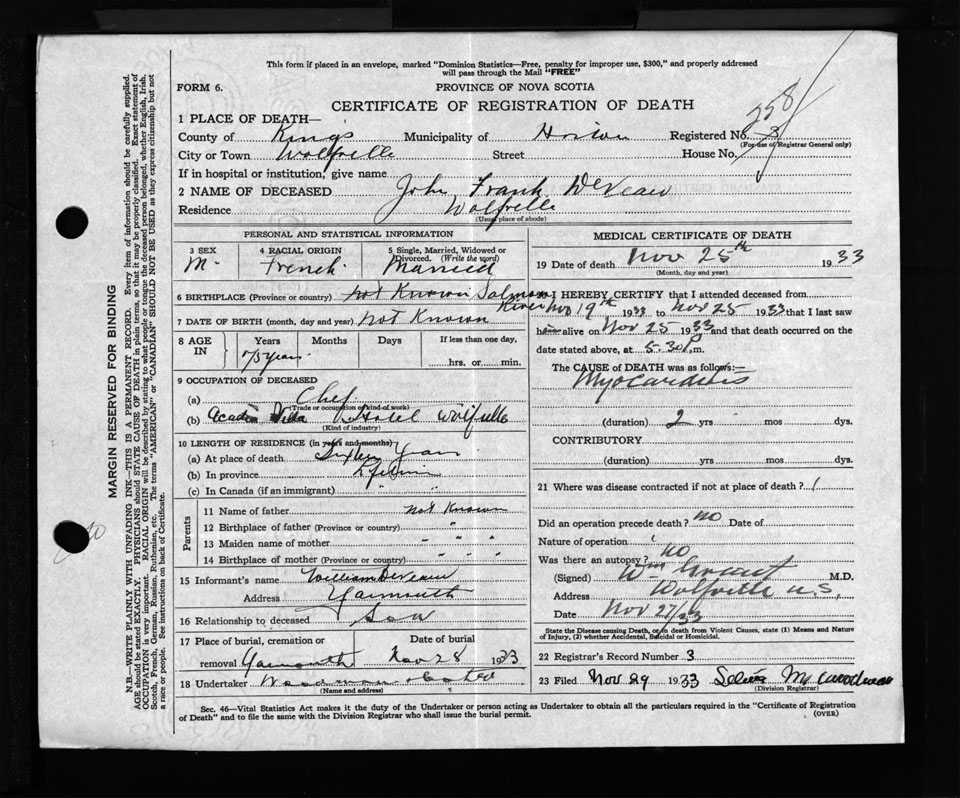 This form if placed in an envelope, marked "Dominion Statistics—Free, penalty for improper use, $300," and properly addressed
will pass through the Mail "FREE"
FORM 6.
PROVINCE OF NOVA SCOTIA
CERTIFICATE OF REGISTRATION OF DEATH
258
1 PLACE OF DEATH—
County of Kings Municipality of Horton Registered No. 3
(For use of Registrar General only)
City or Town Wolfville Street House No.
If in hospital or institution, give name
2 NAME OF DECEASED John Frank DeVeau
Residence Wolfville
(Usual place of abode)
PERSONAL AND STATISTICAL INFORMATION
3 SEX 4 RACIAL ORIGIN 5 Single, Married, Widowed or Divorced. (Write the word)
M. French. Married
6 BIRTHPLACE (Province or country) Not Known Salmon River
7 DATE OF BIRTH (month, day and year) Not Known
8 AGE IN Years Months Days If less than one day,
75 years hrs. or min.
9 OCCUPATION OF DECEASED
(a) Chef
(Trade or occupation or kind of work)
(b) Acadia Villa Hotel Wolfville
(Kind of industry)
10 LENGTH OF RESIDENCE (in years and months)
(a) At place of death years
(b) In province Lifetime
(c) In Canada (if an immigrant) " "
Parents
11 Name of father Not Known
12 Birthplace of father (Province or country) "
13 Maiden name of mother " " "
14 Birthplace of mother (Province or country) " "
15 Informant's name William DeVeau
Address Yarmouth
16 Relationship to deceased Son
17 Place of burial, cremation or Date of burial
removal Yarmouth Nov 28 1933
18 Undertaker Woodman
(Name and address)
MEDICAL CERTIFICATE OF DEATH
19 Date of death Nov 25th 1933
(Month, day and year)
I HEREBY CERTIFY that I attended deceased from
Nov 19th 1933 to Nov 25 1933 that I last saw
him alive on Nov 25 1933 and that death occurred on
date stated above, at 5-30 P.m.
The CAUSE of DEATH was as follows:—
Myocarditis
(duration) 2 yrs mos dys.
CONTRIBUTORY
(duration) yrs. mos. dys.
21 Where was disease contracted if not at place of death?
Did an operation precede death? No Date of
Nature of operation
Was there an autopsy? No
(Signed) Wm M.D.
Address Wolfville N.S.
Date Nov 27/33
State the Disease causing Death, or in death from Violent Causes, state (1) Means and Nature
of Injury, (2) whether Accidental, Suicidal or Homicidal.
22 Registrar's Record Number 3
23 Filed Nov 29 1933 Woodman
(Division Registrar)
Sec. 46—Vital Statistics Act makes it the duty of the Undertaker or person acting as Undertaker to obtain all the particulars required in the "Certificate of Registration
of Death" and to file the same with the Division Registrar who shall issue the burial permit. (OVER)
MARGIN RESERVED FOR BINDING
N.B.—WRITE PLAINLY WITH UNFADING INK—THIS IS A PERMANENT RECORD. Every item of information should be carefully supplied.
AGE should be stated EXACTLY. PHYSICIANS should STATE CAUSE OF DEATH in plain terms, so that it may be properly classified. Exact statement of
OCCUPATION is very important. RACIAL ORIGIN will be described by stating to what people or tongue the deceased person belonged, whether English, Irish,
Scotch, French, German, Russian, Ruthenian, etc. The terms "AMERICAN" or "CANADIAN" SHOULD NOT BE USED as they express citizenship but not
a race or people. See instructions on back of Certificate.